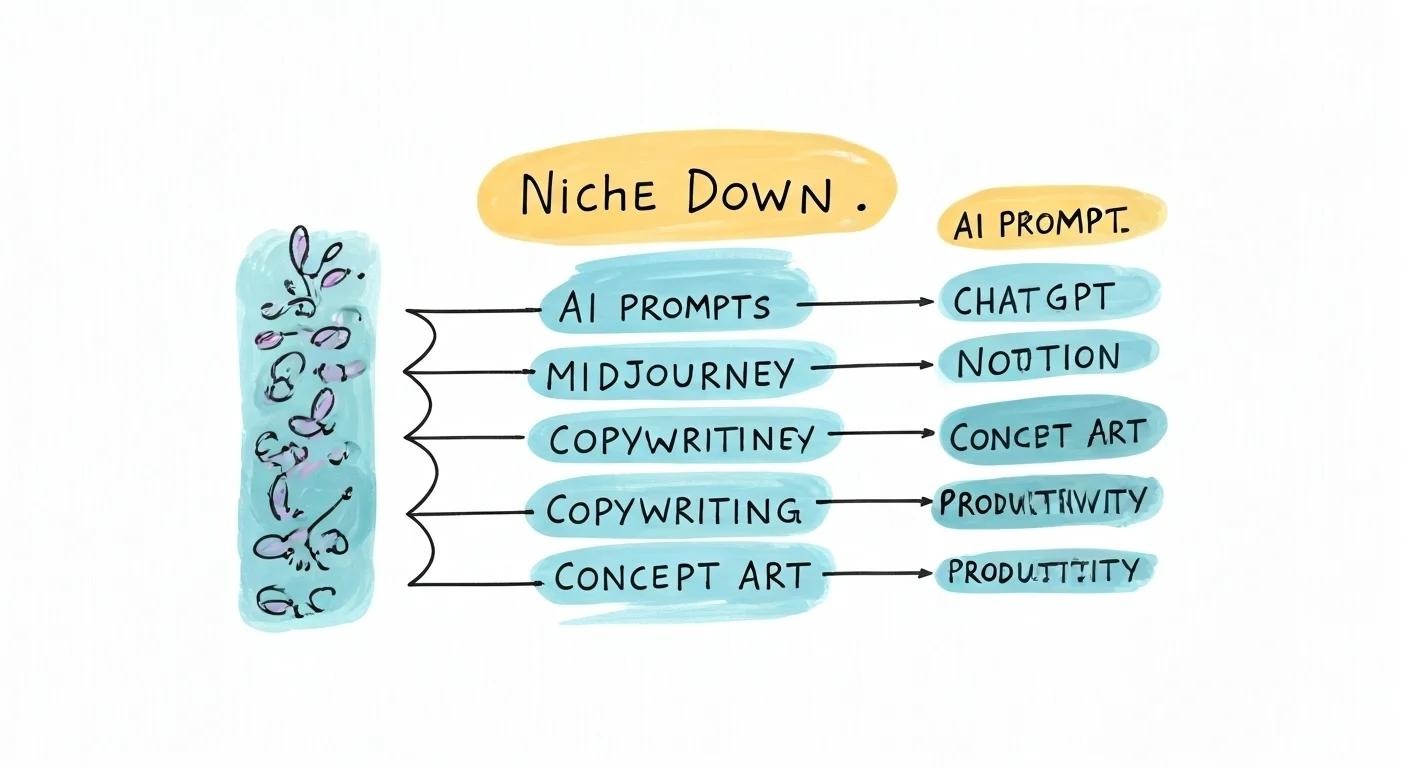 NichE DOWN.
AI PROMPT.
AI PROMPTS
CHATGPT
MIDJOURNEY
COPYWRITINEY
CONCET ART
COPYWRITING
CONCEPT ART